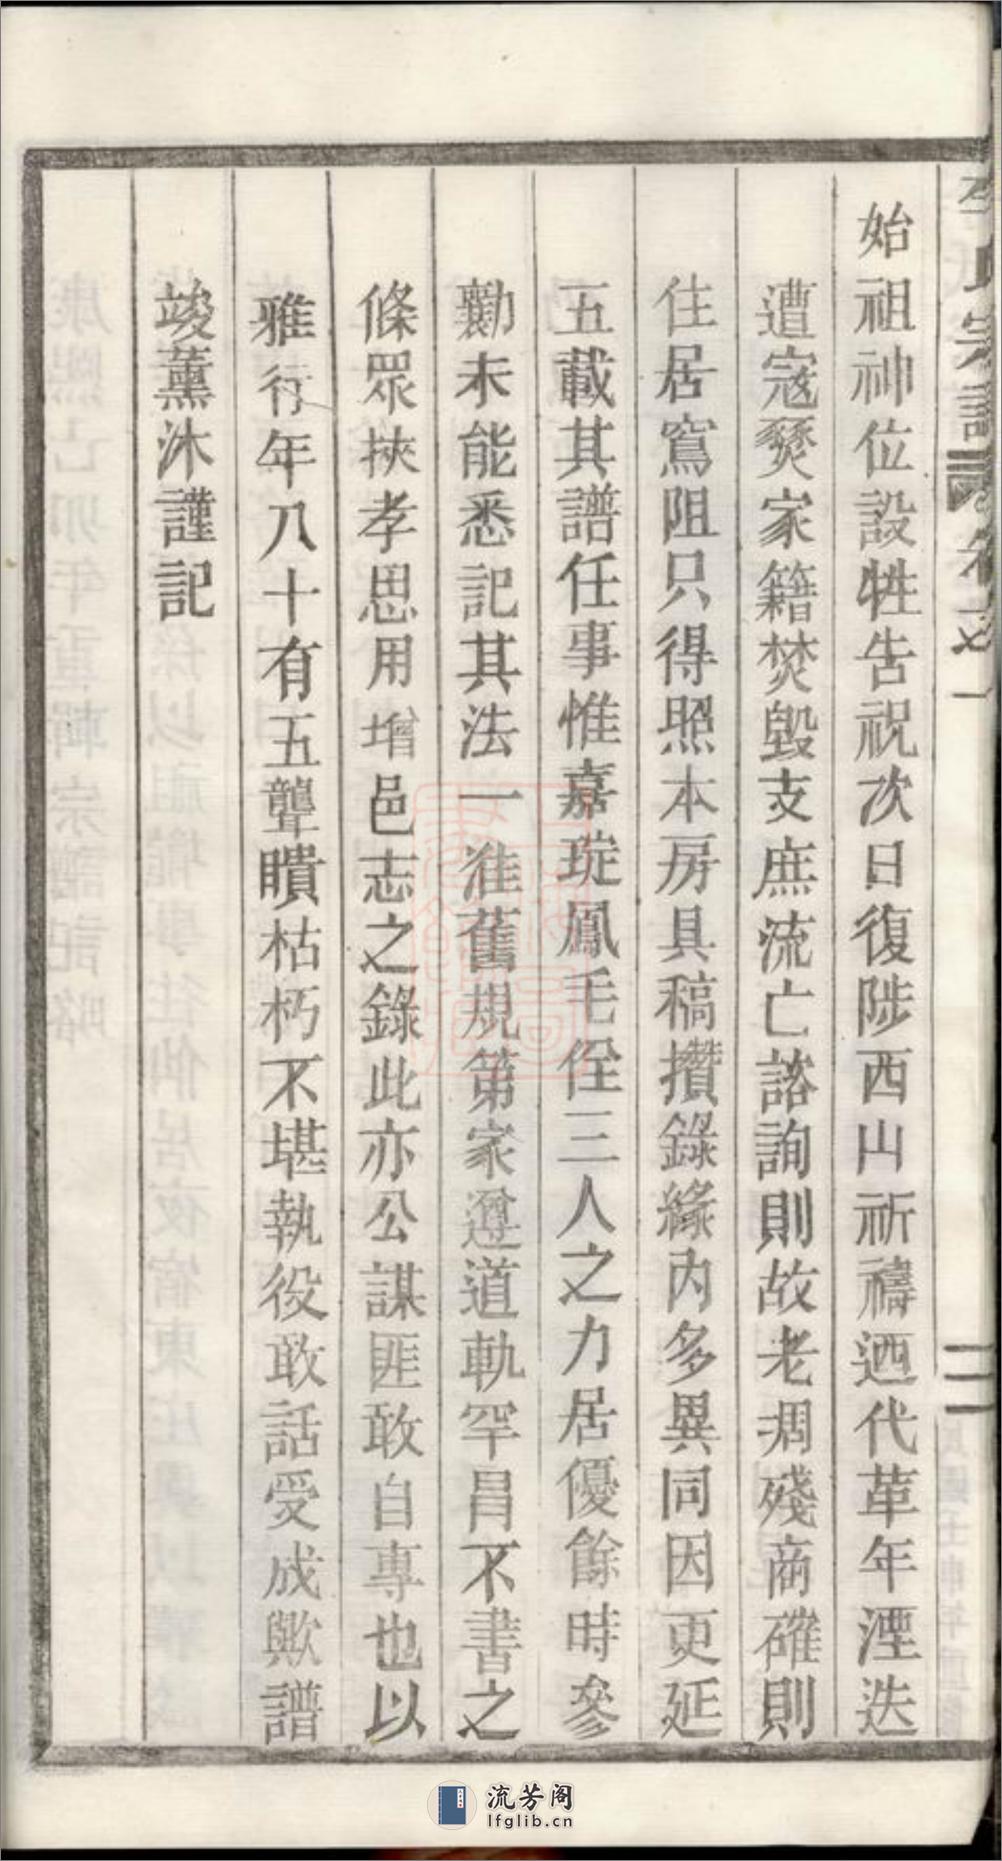 始祖神位設牲告祝次日復陟西山祈禱廼代革年湮迭
遭寇燹家籍焚毀支庶流亡諮詢則故老凋殘商確則
住居窵阻只得照本房具稿攢錄緣內多異同因更延
五載其譜任事惟嘉琁鳳毛侄三人之力居優餘時參
勷未能悉記其法一准舊規第家遵道軌罕昌不書之
條眾挾孝思用增邑志之錄此亦公謀匪敢自專也以
雅行年八十有五聾瞶枯朽不堪執役敢話受成歟譜
竣薰沐謹記
流芳阁
lfglib.cn